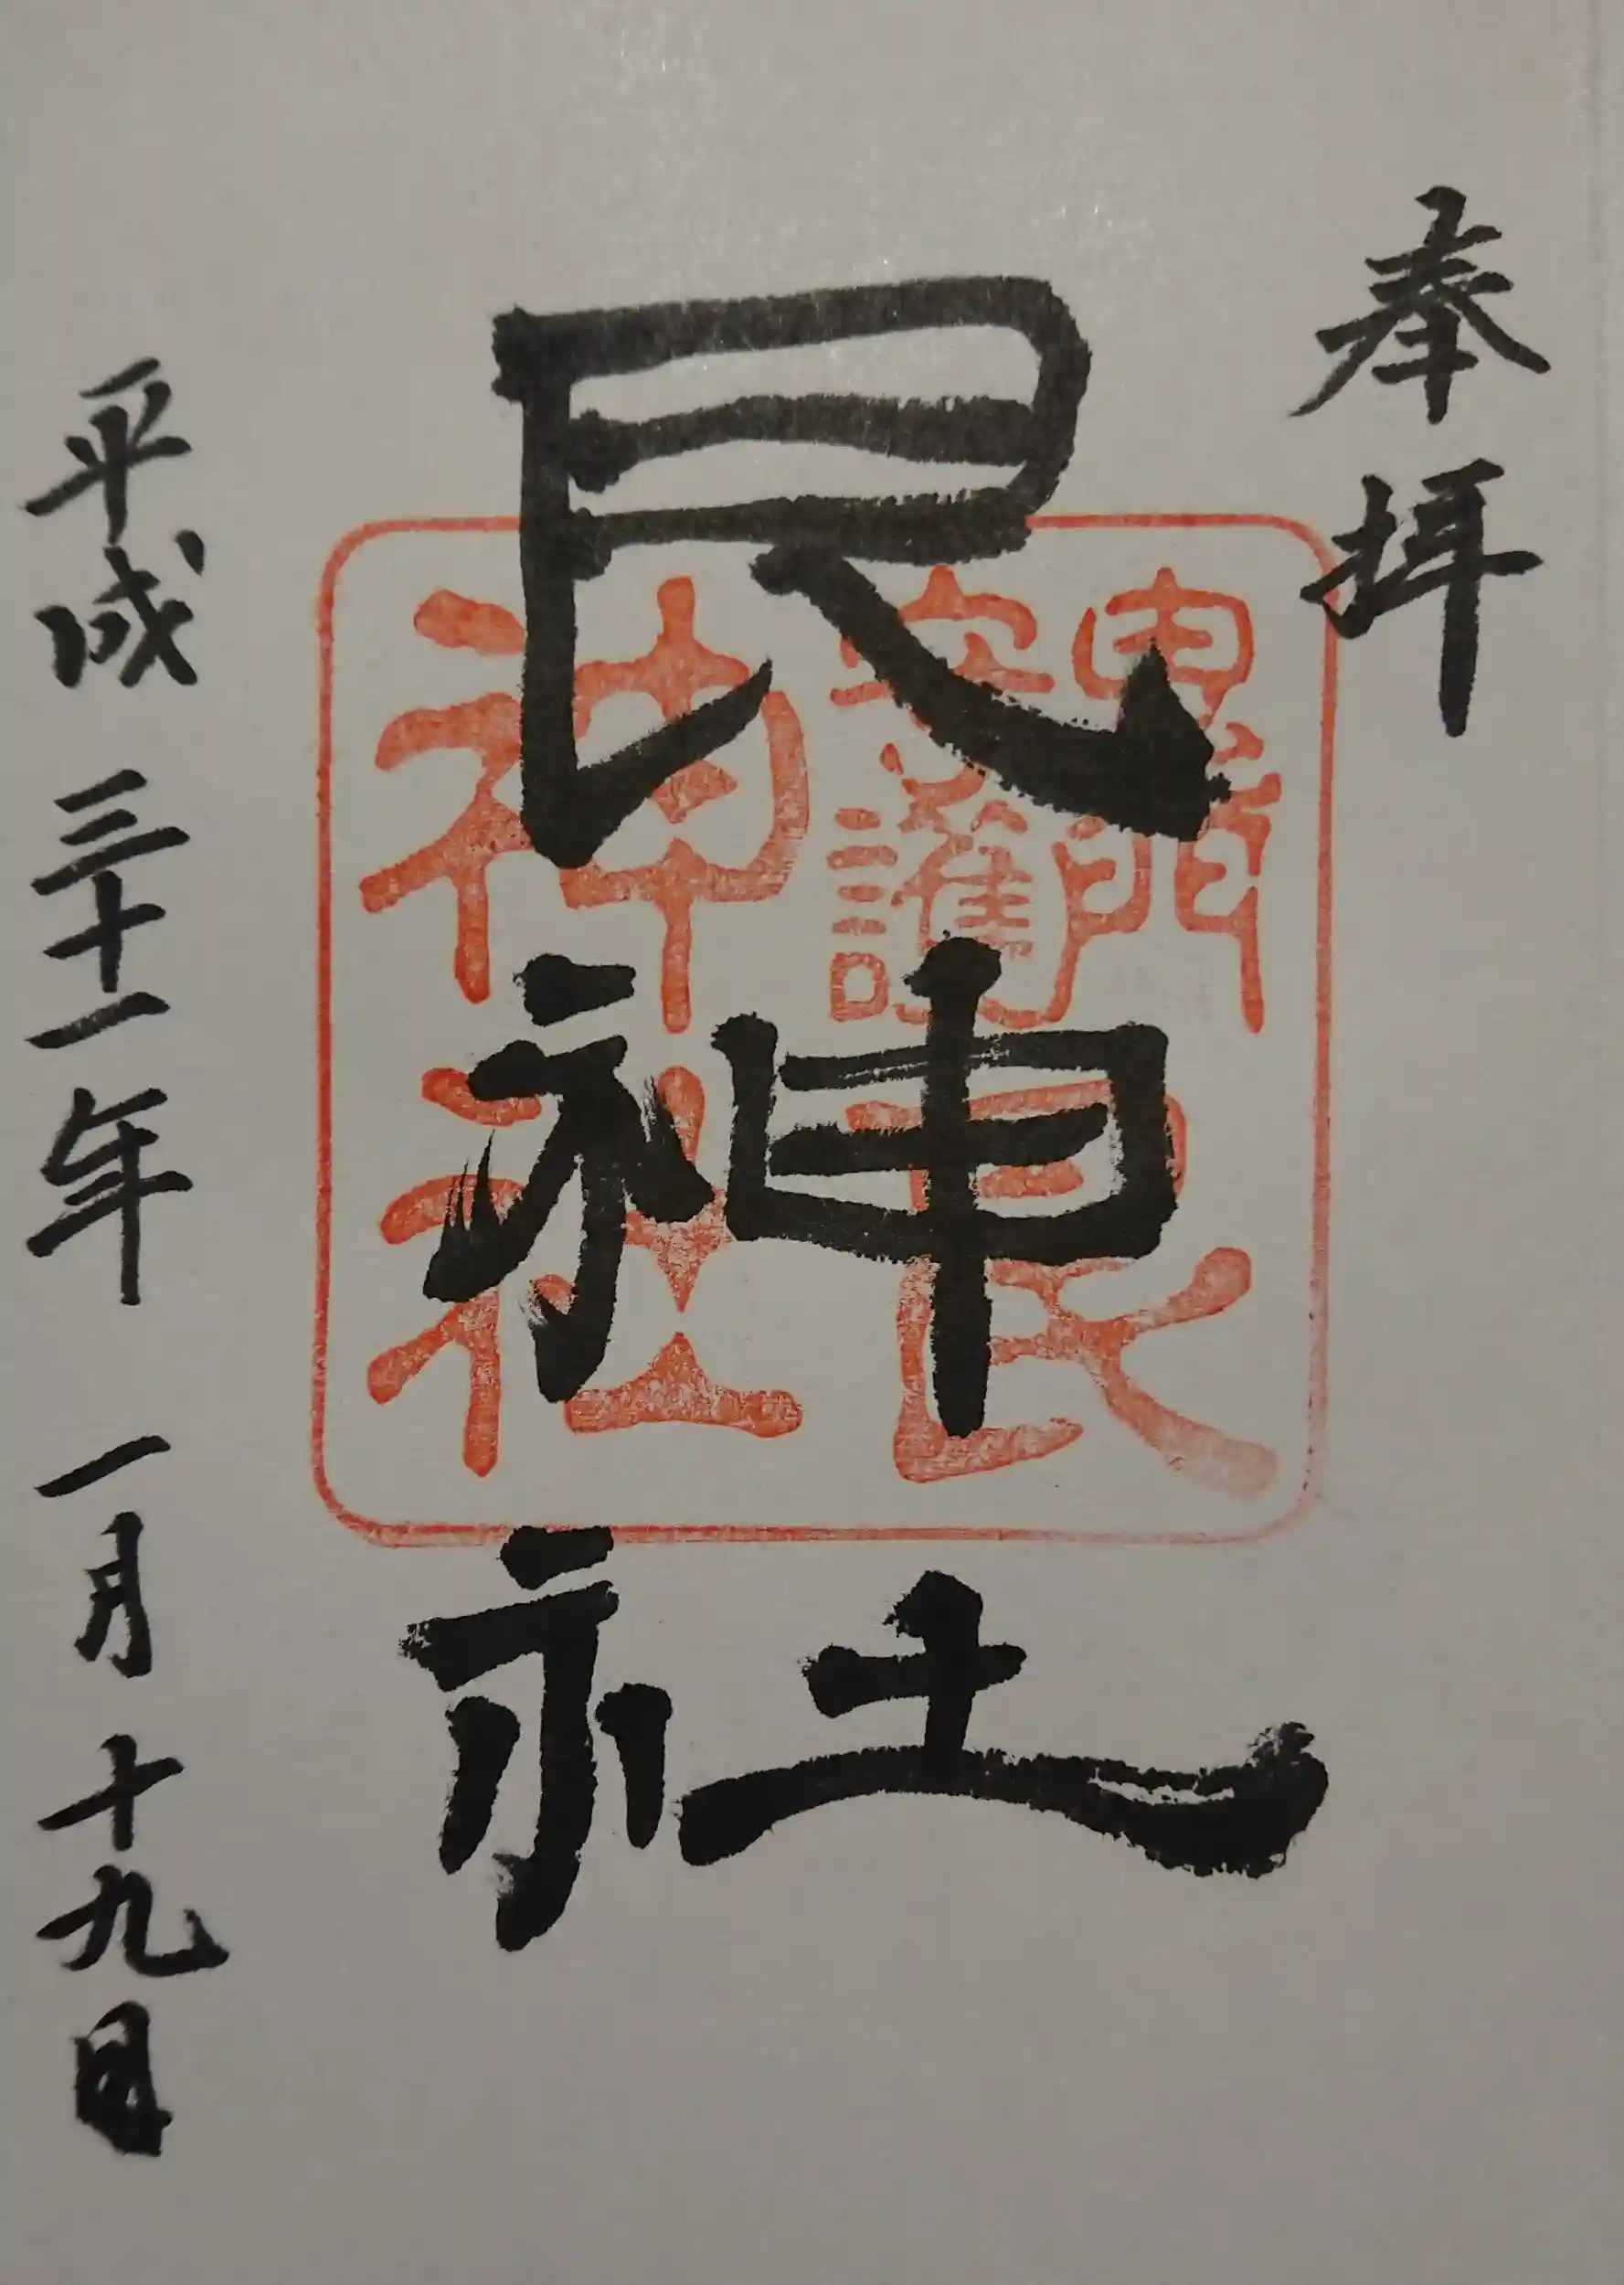 奉拝
艮神社
鬼門
守護
艮
神社
平成三十一年一月十九日